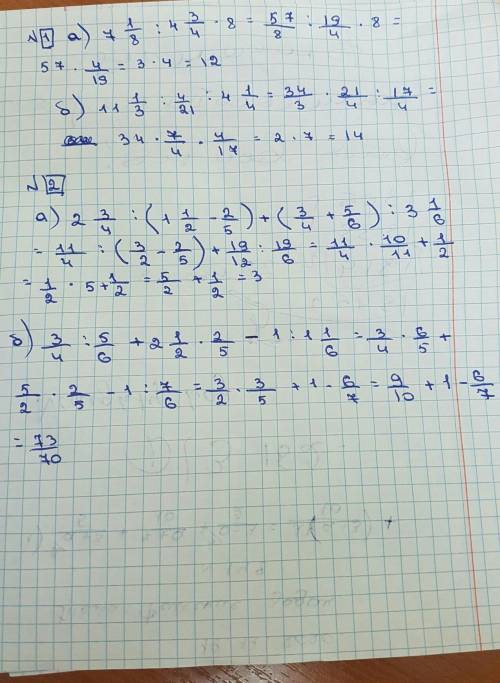 №1 а) 7 1/8 : 4 3/4 · 8 = 57/8 : 19/4 · 8 =
57 · 4/19 = 3 · 4 = 12
б) 11 1/3 : 4/21 : 4 1/4 = 34/3 · 21/4 : 17/4 =
34 · 7/4 · 4/17 = 2 · 7 = 14
№2
а) 2 3/4 : (1 1/2 - 2/5) + (3/4 + 5/6) : 3 1/6
= 11/4 : (3/2 - 2/5) + 19/12 : 19/6 = 11/4 · 10/11 + 1/2
= 1/2 · 5 + 1/2 = 5/2 + 1/2 = 3
б) 3/4 : 5/6 + 2 1/2 · 2/5 - 1 : 1 1/6 = 3/4 · 6/5 +
5/2 · 2/5 - 1 : 7/6 = 3/2 · 3/5 + 1 - 6/7 = 9/10 + 1 - 6/7
= 73/70